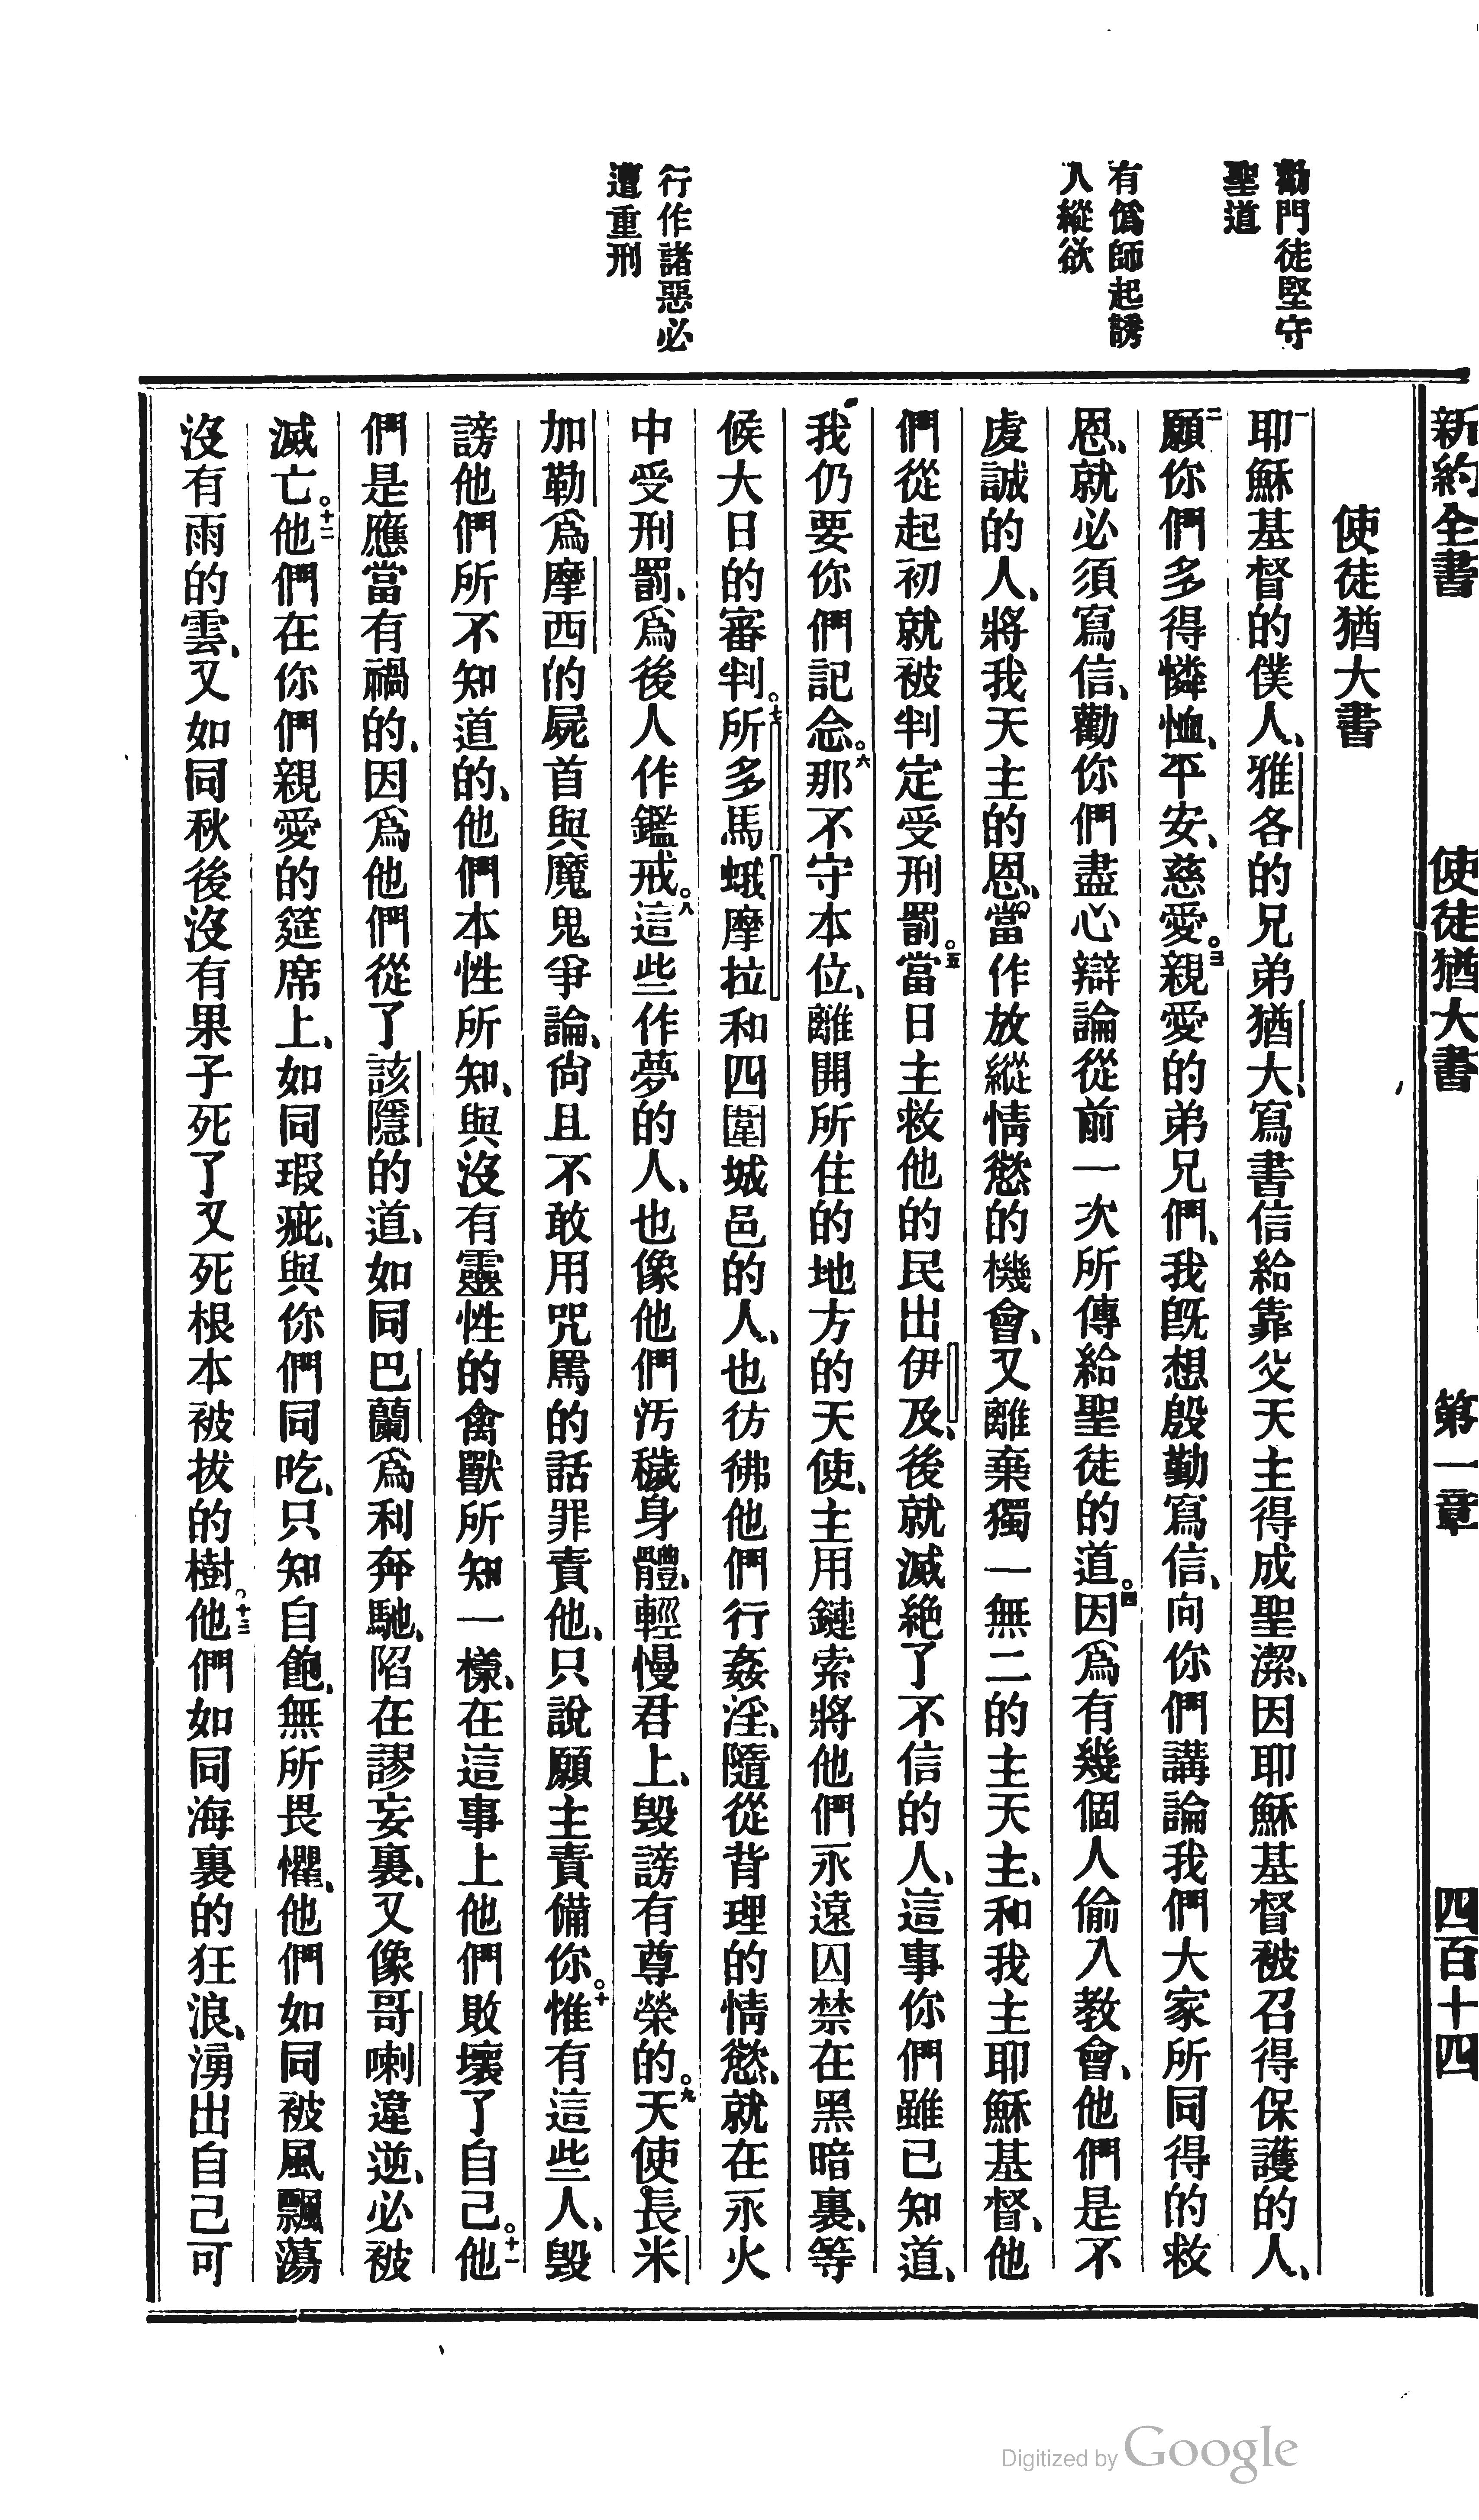 新約全書 使徒猶大書 第一章 四百十四
勸門徒堅守
聖道
有僞師起誘
人縱欲
行作諸惡必
遭重刑
使徒猶大書
一耶穌基督的僕人、雅各的兄弟猶大、寫書信給靠父天主得成聖潔、因耶穌基督被召得保護的人、
二願你們多得憐恤、平安、慈愛。三親愛的弟兄們、我旣想殷勤寫信、向你們講論我們大家所同得的救
恩、就必須寫信、勸你們盡心辯論從前一次所傳給聖徒的道。四因爲有幾個人偷入教會、他們是不
虔誠的人、將我天主的恩、當作放縱情慾的機會、又離棄獨一無二的主天主、和我主耶穌基督、他
們從起初就被判定受刑罰。五當日主救他的民出伊及、後就滅絕了不信的人、這事你們雖已知道、
我仍要你們記念。六那不守本位、離開所住的地方的天使、主用鏈索將他們永遠囚禁在黑暗裏、等
候大日的審判。七所多馬蛾摩拉和四圍城邑的人、也彷彿他們行姦淫、隨從背理的情慾、就在永火
中受刑罰、爲後人作鑑戒。八這些作夢的人、也像他們汚穢身體、輕慢君上、毀謗有尊榮的。九天使長米
加勒爲摩西的屍首與魔鬼爭論、尙且不敢用咒罵的話罪責他、只說願主責備你。十惟有這些人、毀
謗他們所不知道的、他們本性所知、與沒有靈性的禽獸所知一樣、在這事上他們敗壞了自己。十一他
們是應當有禍的、因爲他們從了該隱的道、如同巴蘭爲利奔馳、陷在謬妄裏、又像哥喇違逆、必被
滅亡。十二他們在你們親愛的筵席上、如同瑕疵、與你們同吃、只知自飽、無所畏懼、他們如同被風飄蕩
沒有雨的雲、又如同秋後沒有果子死了又死根本被拔的樹。十三他們如同海裏的狂浪、湧出自己可
Digitized by Google